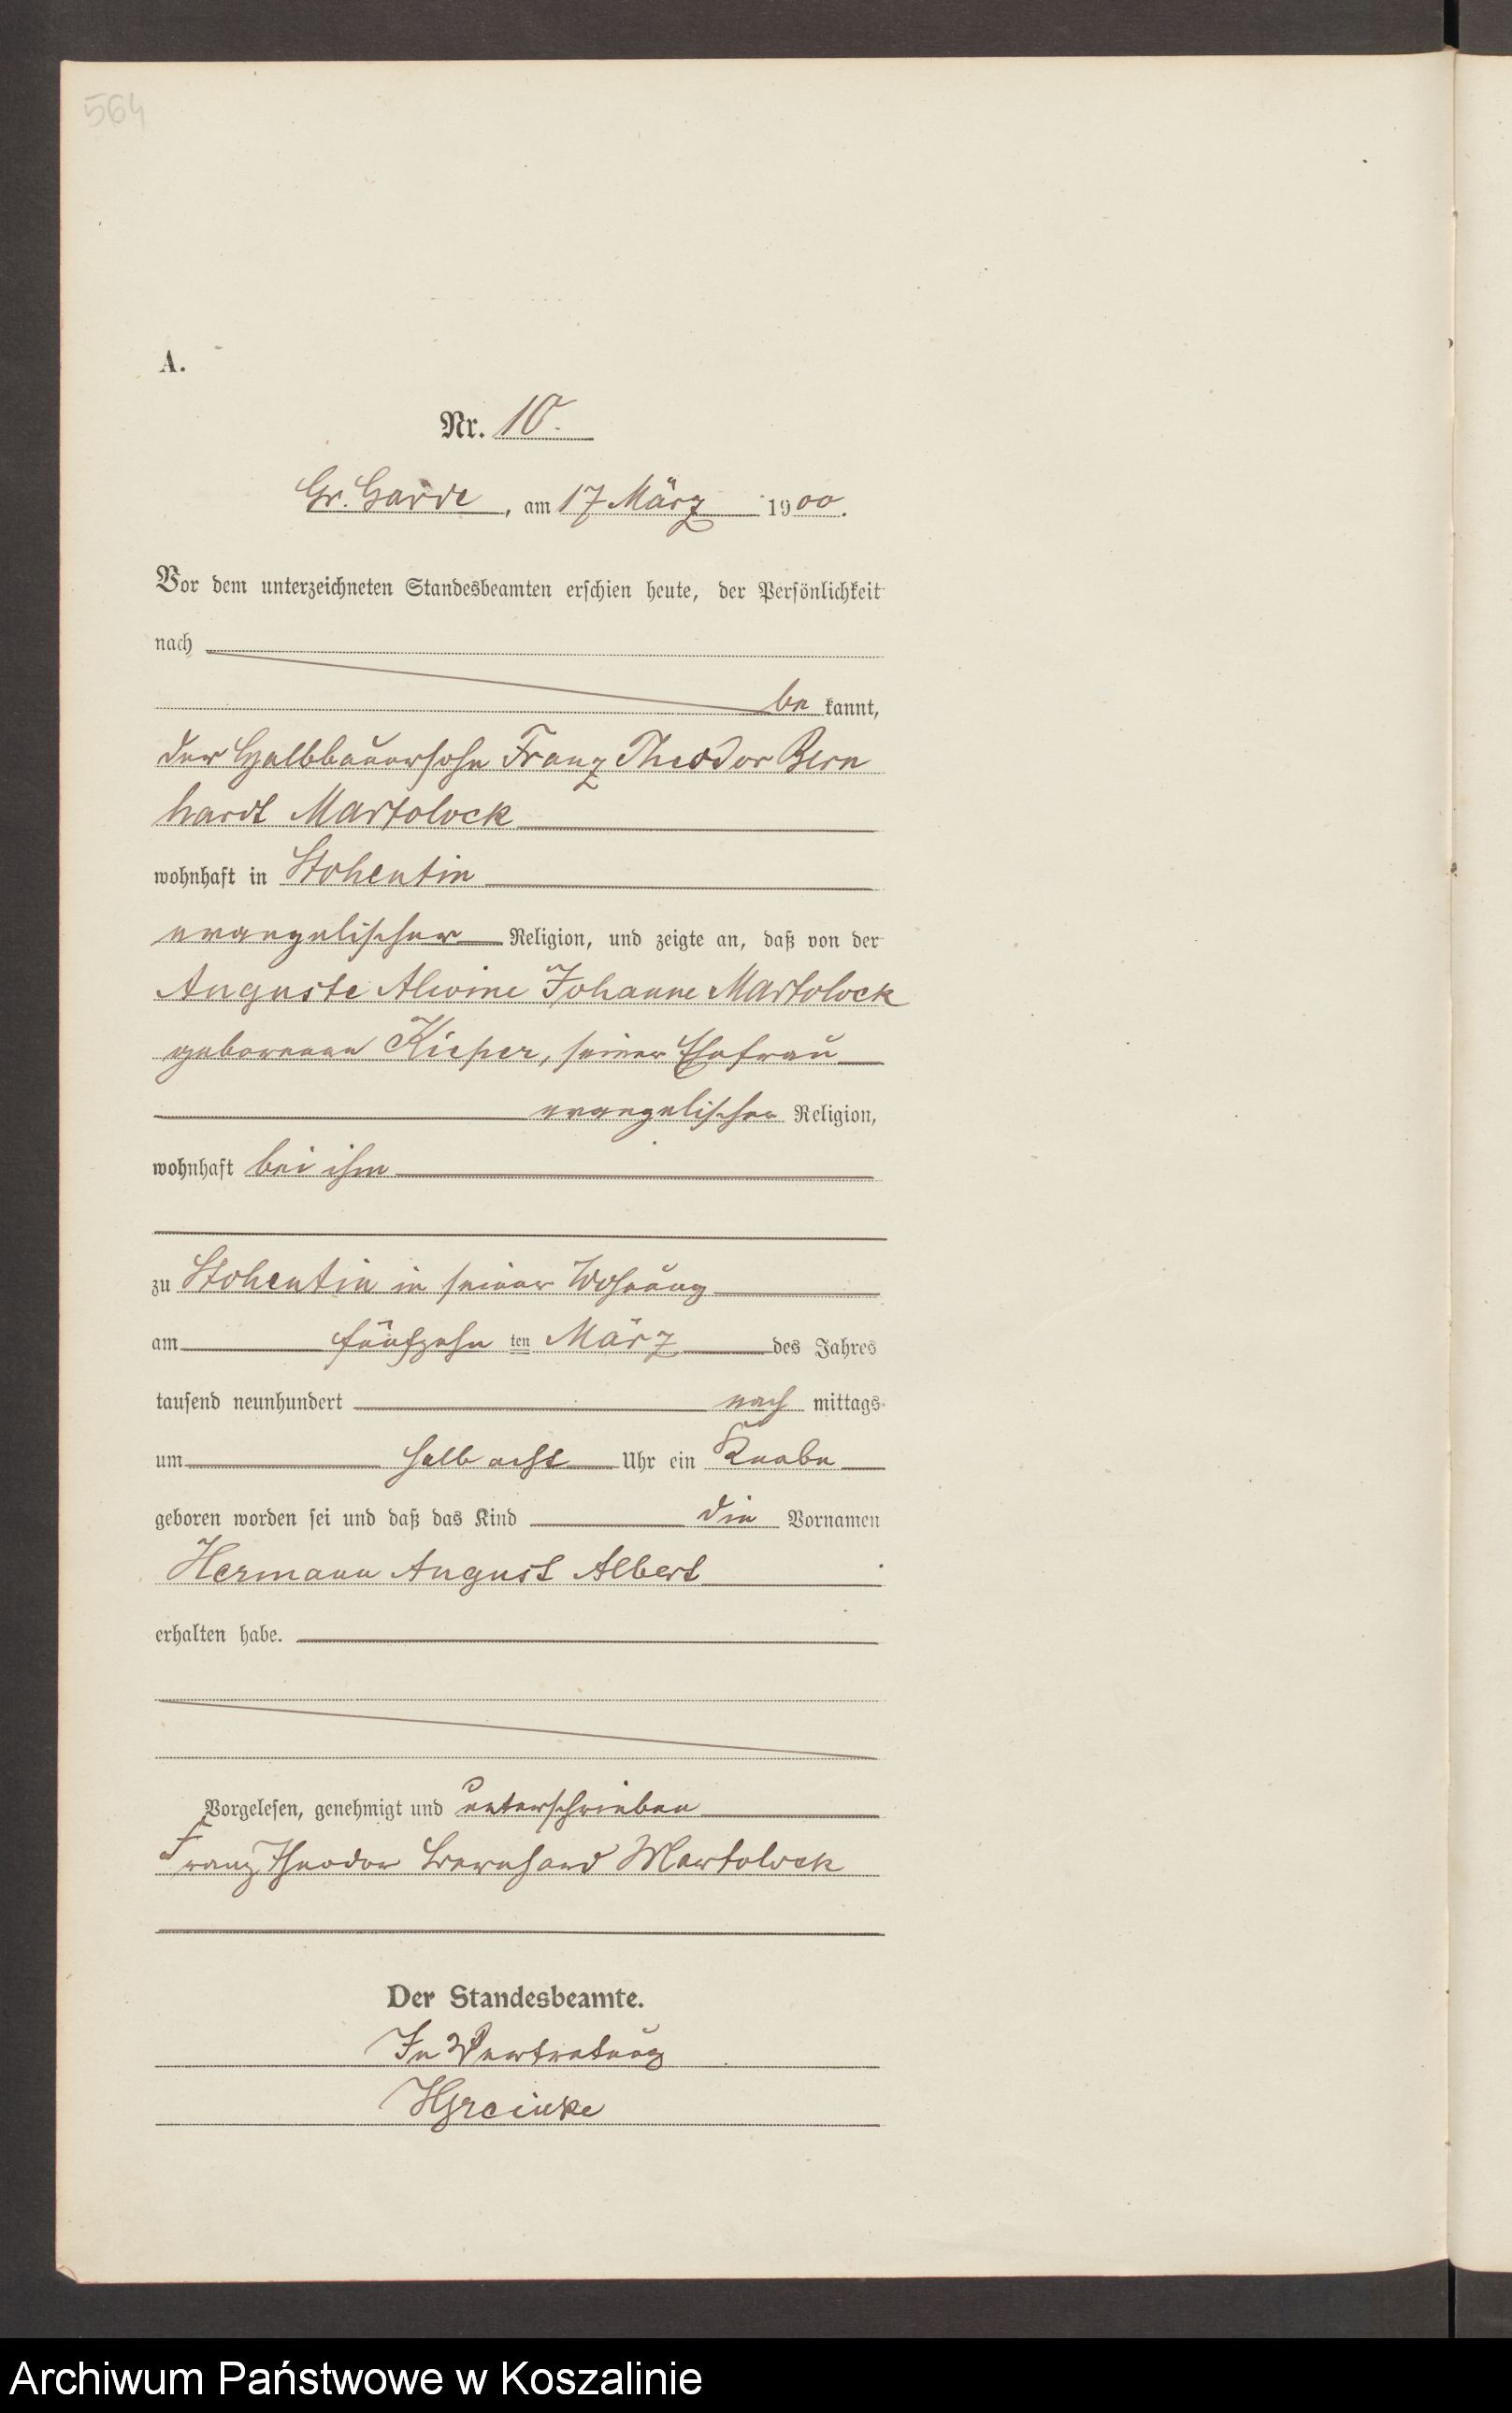 564
A.
Nr. 10.
Gr. Garde, am 17 März 1900.
Vor dem unterzeichneten Standesbeamten erschien heute, der Persönlichkeit
nach
be kannt,
der Halbbauersohn Franz Theodor Bern
hardt Martolock
wohnhaft in Stohentin
evangelischer Religion, und zeigte an, daß von der
Auguste Alwine Johanne Martolock
geborenen Kieper, seiner Ehefrau
evangelischer Religion,
wohnhaft bei ihm
zu Stohentin in seiner Wohnung
am fünfzehn ten März des Jahres
tausend neunhundert nach mittags
um halb acht Uhr ein Knabe
geboren worden sei und daß das Kind die Vornamen
Hermann August Albert
erhalten habe.
Vorgelesen, genehmigt und unterschrieben
Franz Theodor Bernhard Martolock
Der Standesbeamte.
In Vertretung
HGreinke
Archiwum Państwowe w Koszalinie